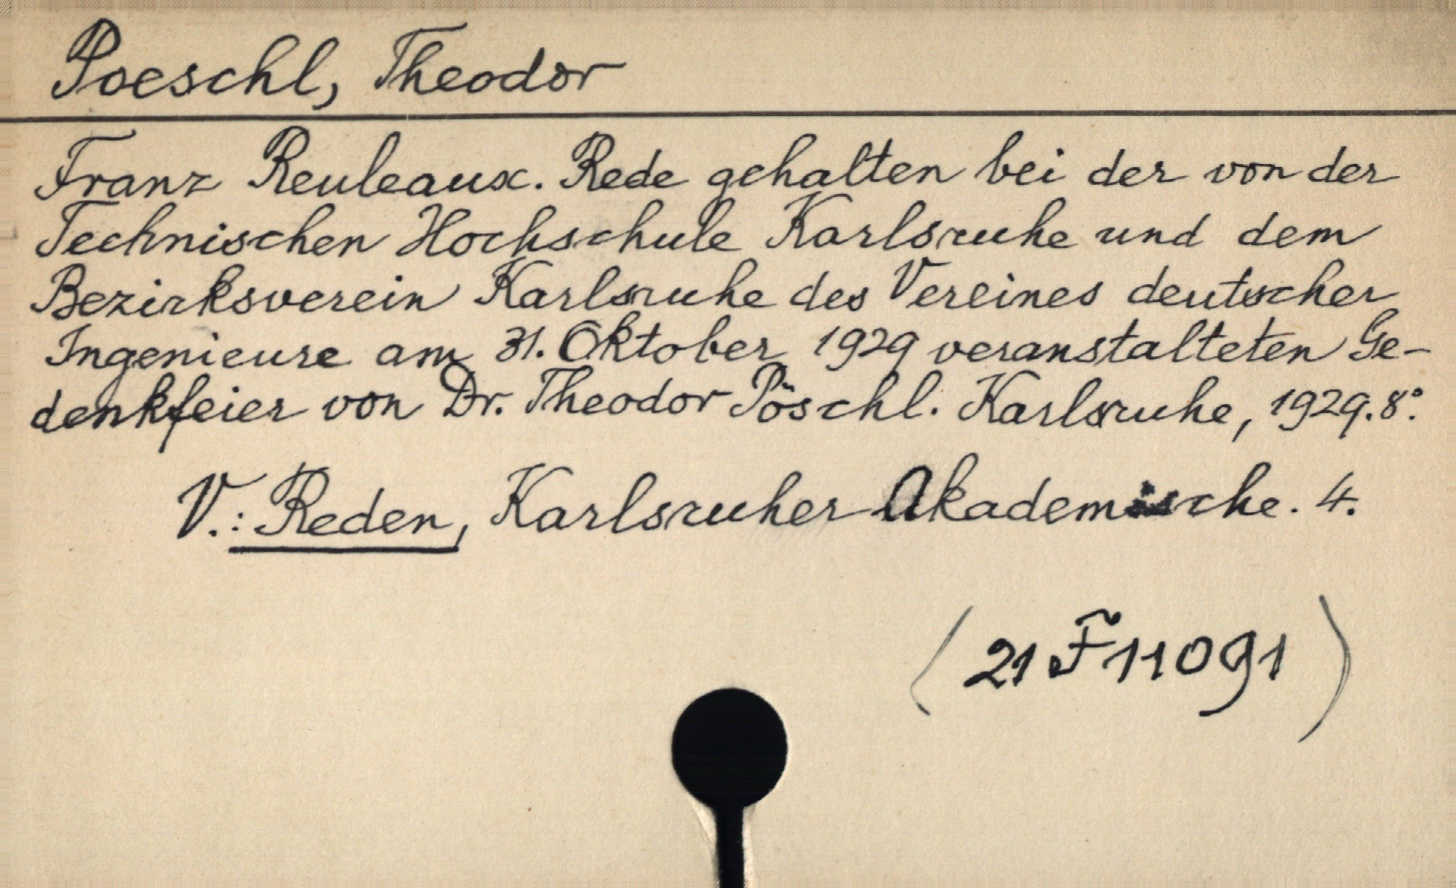 Poeschl, Theodor
Franz Reuleaux. Rede gehalten bei der von der
Technischen Hochschule Karlsruhe und dem
Bezirksverein Karlsruhe des Vereines deutscher
Ingenieure am 31. Oktober 1929 veranstalteten Ge-
denkfeier von Dr. Theodor Pöschl. Karlsruhe, 1929. 8°.
V.: Reden, Karlsruher Akademische. 4.
(21 F 11091)